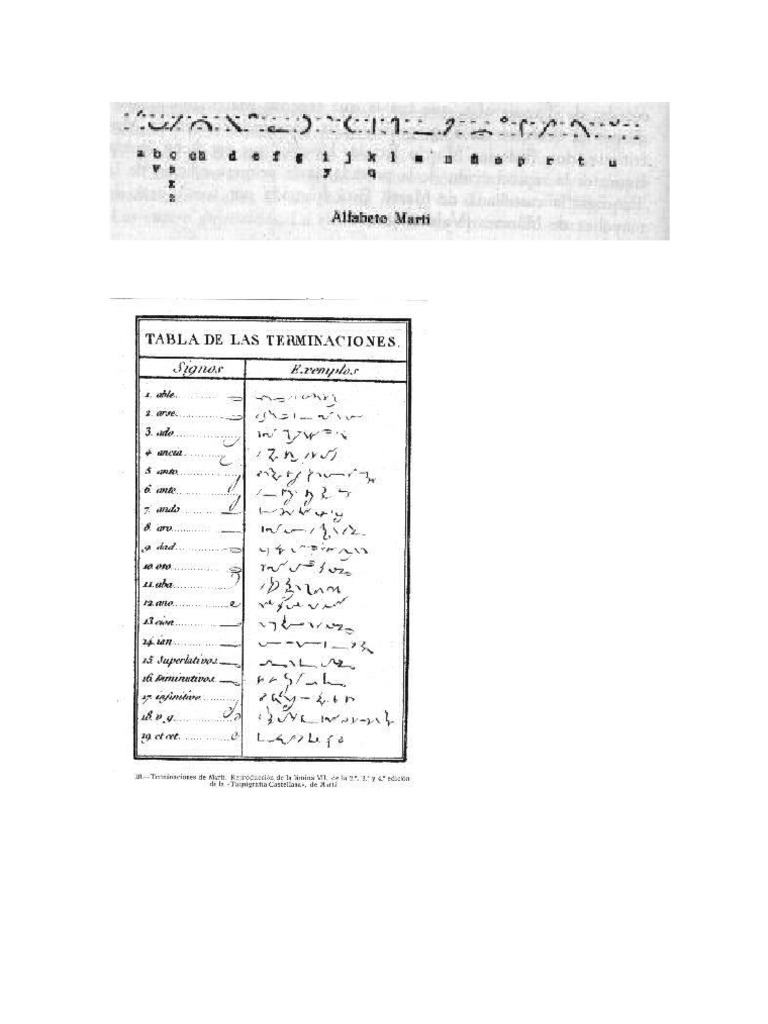 a b c ch d e f g i j k l m n ñ o p r t u
v s y q
x
z
Alfabeto Martí
TABLA DE LAS TERMINACIONES.
Signos Exemplos
1. able
2. arse
3. ado
4. ancia
5. anto
6. ante
7. ando
8. aro
9. dad
10. oto
11. aba
12. ano
13. cion
14. ian
15. Superlativos
16. Deminutivos
17. infinitivo
18. v g
19. et cet.
Terminaciones de Martí. Reproducción de la lámina VII, de la 2.ª, 3.ª y 4.ª edición
de la «Taquigrafía Castellana», de Martí